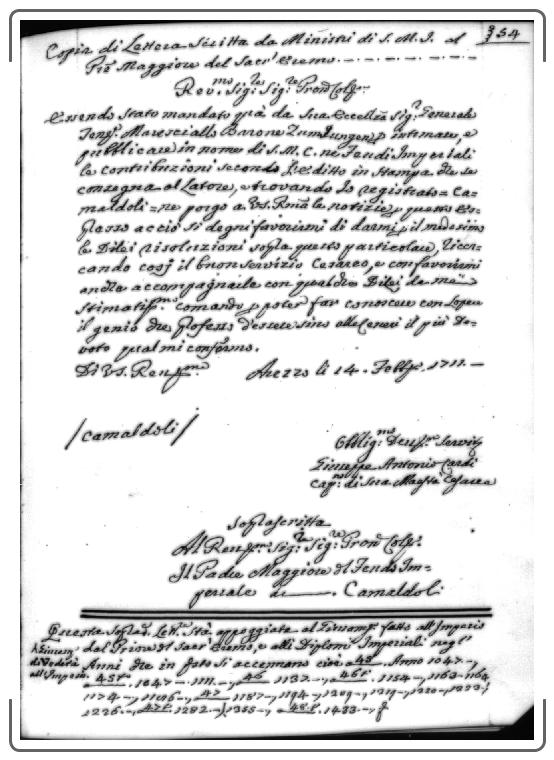 354
Copia di Lettera Scritta da Ministri di S. M. I. al
Pre Maggiore del Sacr' Eremo
Rev.mo Sig.re Sig.re Pron Col.
Essendo Stato mandato quà da Sua Eccellza Sig.r Generale
Maresciallo Barone Zumiungen p intimare, e
pubblicare in nome di S. M. C. ne Feudi Imperiali
le contribuzioni secondo l'Editto in Stampa che se
consegna al Latore, e trovando Io registrato Ca-
maldoli ne porgo a VS. Rma le notizie p questo Es-
presso acciò si degni favorirmi di darmi p il medesimo
le Dilei risoluzioni sopra questo particolare, Ricer-
cando così il buon servizio Cesareo, e con favorirmi
anche accompagnarle con qualche Dilei da me
Stimatiss.mo comando p poter far conoscere con l'opere
il genio che professo d'essere sino alle Ceneri il più De-
voto qual mi confermo.
Di VS. Rev.ma Arezzo li 14. Febb. 1711. –
/Camaldoli/
Obblig.mo Dev.mo Servit.
Giuseppe Antonio Cardi
Cap.no di Sua Maestà Cesarea
Soprascritta
Al Rev. Sig.re Sig.re Pron Col.
Il Padre Maggiore del Feudo Im-
periale di Camaldoli
Questa Soprad. Lett.ra Stà appoggiata al fatto all'Imperio
dal Priore di Sacr Eremo, e alli Diplomi Imperiali negl'
Anni che in fatto si accennano cioè 45 Anno 1047 –,
all'Imperio. 45t.o 1047 – 1111. –, 46 1137. –, 46t. 1154 –, 1163 – 1164
1174. –, 1186 –, 47 1187 – 1194 –, 1209 –, 1219 –, 1220 –, 1223;
1226. –, 47t. 1292. –, 1355 –, 48t. 1433. –,